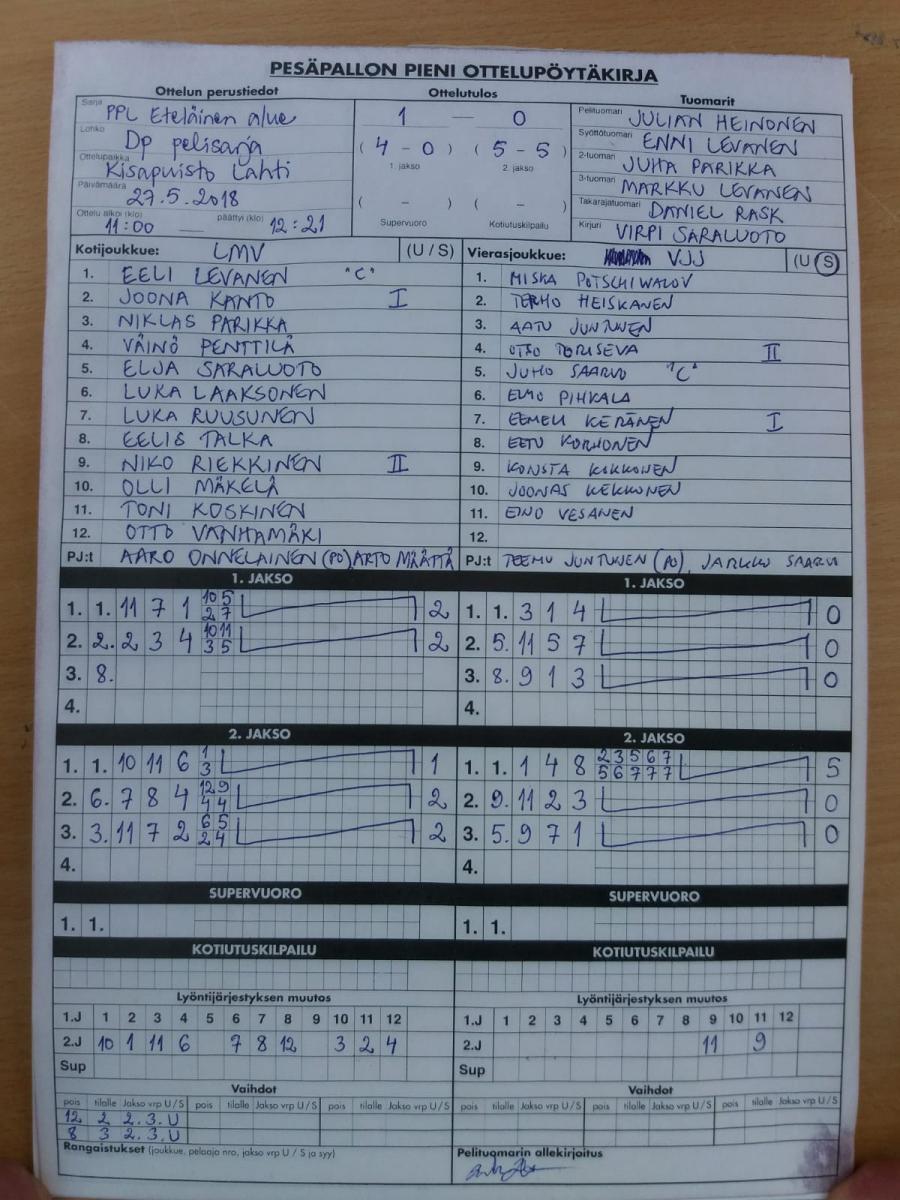 PESÄPALLON PIENI OTTELUPÖYTÄKIRJA
Ottelun perustiedot
Sarja PPL Eteläinen alue
Lohko Dp pelisarja
Ottelupaikka Kisapuisto Lahti
Päivämäärä 27.5.2018
Ottelu alkoi (klo) 11:00 — päättyi (klo) 12:21
Ottelutulos
1 — 0
( 4 - 0 ) ( 5 - 5 )
1. jakso 2. jakso
( - ) ( - )
Supervuoro Kotiutuskilpailu
Tuomarit
Pelituomari JULIAN HEINONEN
Syöttötuomari ENNI LEVANEN
2-tuomari JUHA PARIKKA
3-tuomari MARKKU LEVANEN
Takarajatuomari DANIEL RASK
Kirjuri VIRPI SARALUOTO
Kotijoukkue: LMV (U / S)
1. EELI LEVANEN "C"
2. JOONA KANTO I
3. NIKLAS PARIKKA
4. VÄINÖ PENTTILÄ
5. ELJA SARALUOTO
6. LUKA LAAKSONEN
7. LUKA RUUSUNEN
8. EELIS TALKA
9. NIKO RIEKKINEN II
10. OLLI MÄKELÄ
11. TONI KOSKINEN
12. OTTO VANHAMÄKI
PJ:t AARO ONNELAINEN (PO) ARTO MÄÄTTÄ
Vierasjoukkue: VJJ (U / S)
1. MISKA POTSCHIWALOV
2. TERHO HEISKANEN
3. AATU JUNTUNEN
4. OTSO TORISEVA II
5. JUHO SAARVO "C"
6. ELMO PIHKALA
7. EEMELI KERÄNEN I
8. EETU KORHONEN
9. KONSTA KOKKONEN
10. JOONAS KEKKONEN
11. EINO VESANEN
12.
PJ:t TEEMU JUNTUNEN (PO), JARKKO SAARVO
1. JAKSO
1. 1. 11 7 1 10 5 2
2 7
2. 2. 2 3 4 10 11 2
3 5
3. 8.
4.
1. JAKSO
1. 1. 3 1 4 0
2. 5. 11 5 7 0
3. 8. 9 1 3 0
4.
2. JAKSO
1. 1. 10 11 6 1 1
3
2. 6. 7 8 4 12 9 2
4 4
3. 3. 11 7 2 6 5 2
2 4
4.
2. JAKSO
1. 1. 1 4 8 2 3 5 6 7 5
5 6 7 7 7
2. 9. 11 2 3 0
3. 5. 9 7 1 0
4.
SUPERVUORO
1. 1.
SUPERVUORO
1. 1.
KOTIUTUSKILPAILU
KOTIUTUSKILPAILU
Lyöntijärjestyksen muutos
1.J 1 2 3 4 5 6 7 8 9 10 11 12
2.J 10 1 11 6 7 8 12 3 2 4
Sup
Lyöntijärjestyksen muutos
1.J 1 2 3 4 5 6 7 8 9 10 11 12
2.J 11 9
Sup
Vaihdot
pois tilalle Jakso vrp U / S pois tilalle Jakso vrp U / S pois tilalle Jakso vrp U / S
12 2 2.3.U
8 3 2.3.U
Vaihdot
pois tilalle Jakso vrp U / S pois tilalle Jakso vrp U / S pois tilalle Jakso vrp U / S
Rangaistukset (joukkue, pelaaja nro, jakso vrp U / S ja syy)
Pelituomarin allekirjoitus